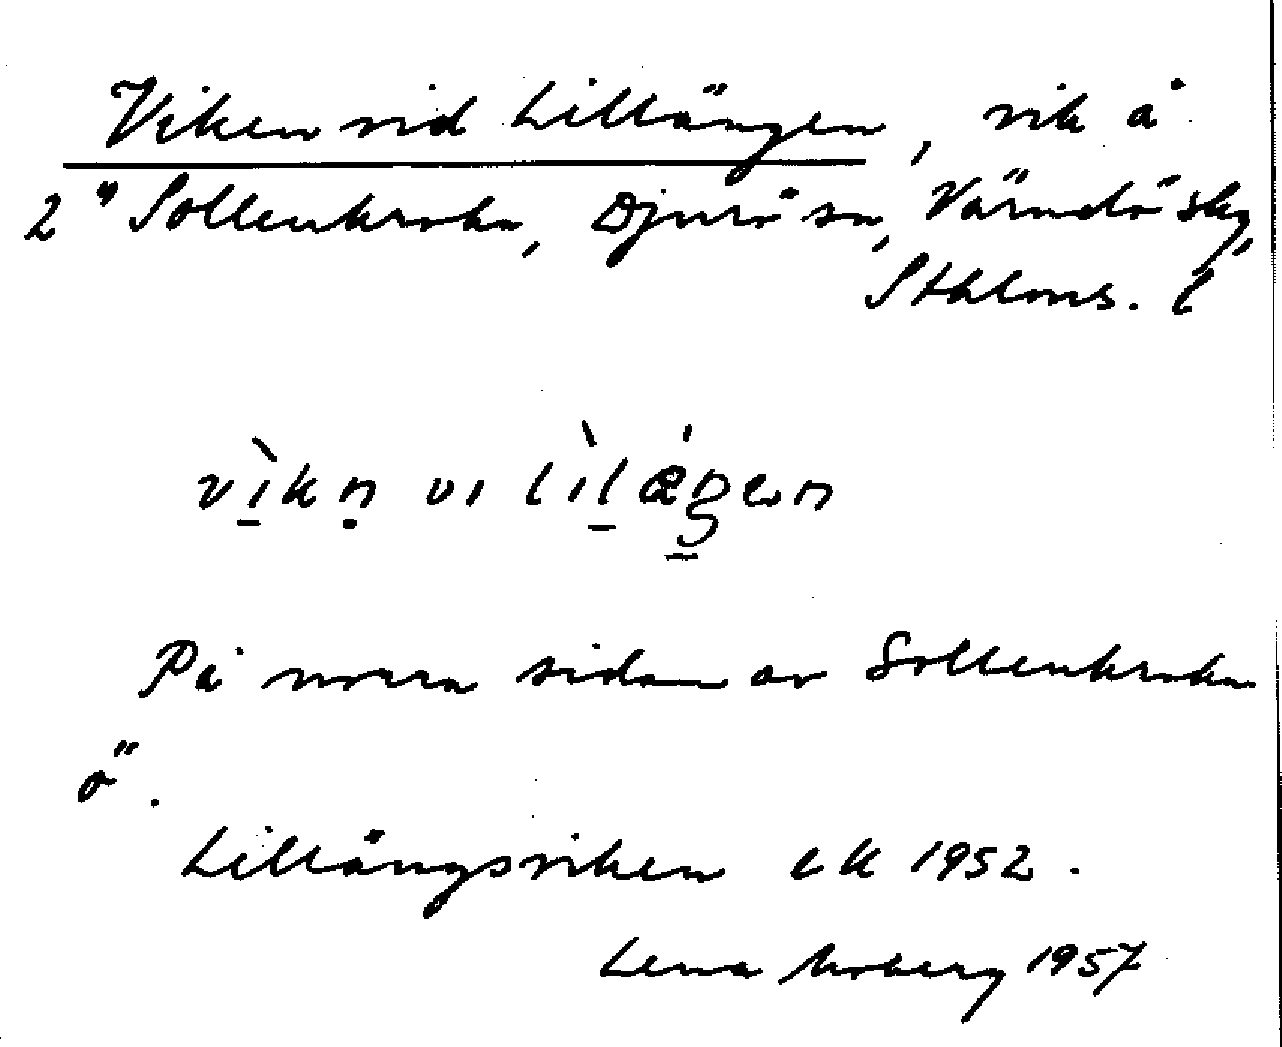 Viken vid Lillängen, vik å
2" Sollenkroka, Djurö sn, Värmdö skg,
Sthlms. l
vìkn vi lìlægen
På norra sidan av Sollenkroka
ö.
Lillängsviken ek 1952.
Lena Moberg 1957